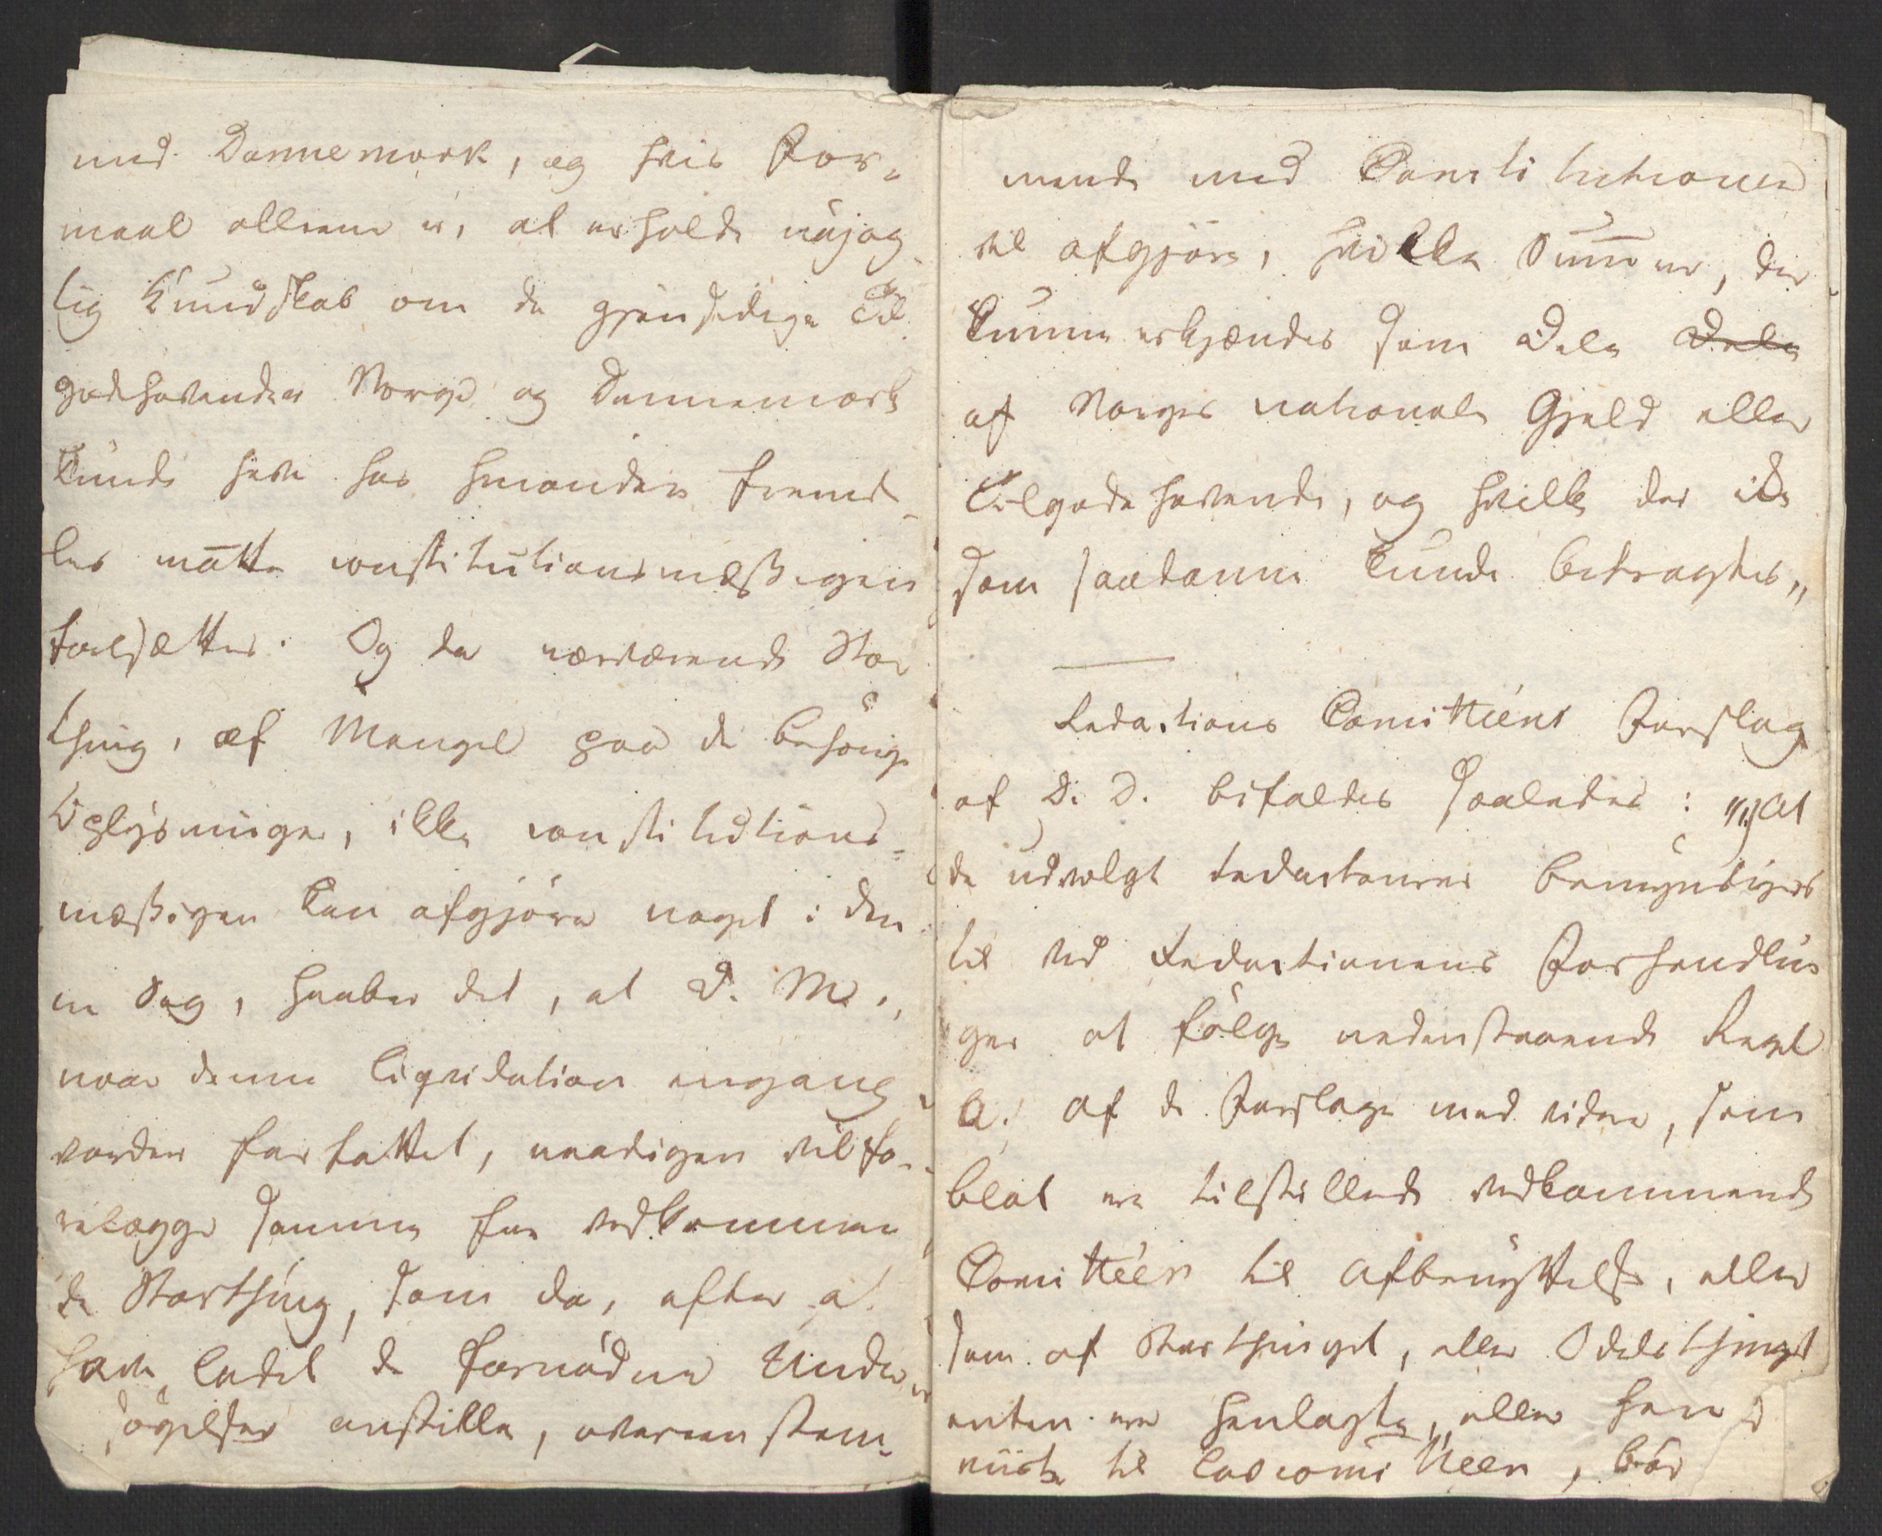 med Dannemark, og hvis For-
maal alleene er, at erholde nøjag-
lig Kundskab om de gjensidige Til-
godehavender Norge og Dannemark
kunde have hos hinanden fremde-
les måtte constitutionsmæssigen
fortsættes. Og da nærværende Stor
thing, af Mangel paa de behørige
Oplysninger, ikke constitutions-
mæssigen kan afgjøre noget i den-
ne Sag, haaber det, at D. M.,
naar denne Liqvidation engang
vorder forfattet, naadigen vil fo-
relægge samme for vedkommen
de Storthing, som da, efter at
have ladet de fornødne Under-
søgelser anstille, overeenstem-
mende med Constitutionen
vil afgjøre, hvilke Summer, der
kunne erkjendes som Dele Dele
af Norges nationale Gjeld eller
Tilgodehavende, og hvilke der ikke
som saadanne kunde betragtes„
Redactions Comitteens Forslag
af D. D. bifaldes saaledes: „1) At
de udvalgte Redacteurer bemyndiges
til ved Redactionens Forhandlin
ger at følge nedenstaaende Regel
a. af de Forslage med videre, som
blot ere tilstillede vedkommende
Comitteer til Afbenyttelse, eller
som af Storthinget, eller Odelsthinget
enten ere henlagte, eller hen
viiste til Lovcomitteen, bør